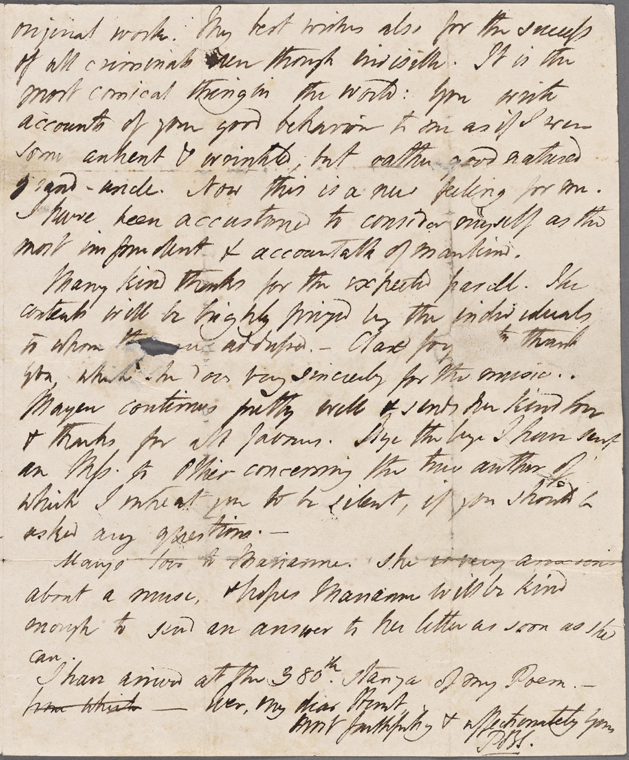 original work. My best wishes also for the success
of all criminals even though indivisible. It is the
most comical thing in the world: You write
accounts of your good behavior to me as if I were
some antient & wrinkled, but rather good natured
grand-uncle. Now this is a new feeling for me.
I have been accustomed to consider myself as the
most imprudent & accountable of mankind.
Many kind thanks for the expected parcell. The
contents will be highly prized by the individuals
to whom addressed.— Clare for to thank
you, which she does very sincerely for the music..
Mayer continues pretty well & sends her kind love
& thanks for all favours. Bye the bye I have sent
an Mss. to Ollier concerning the true author of
which I intreat you to be silent, if you should be
asked any questions.—
Marys love to Marianne. She is very anxious
about a nurse, & hopes Marianne will be kind
enough to send an answer to her letter as soon as she
can.
I have arrived at the 380th. Stanza of my Poem.—
from which — Ever, my dear Hunt,
most faithfully & affectionately yours
PBS.